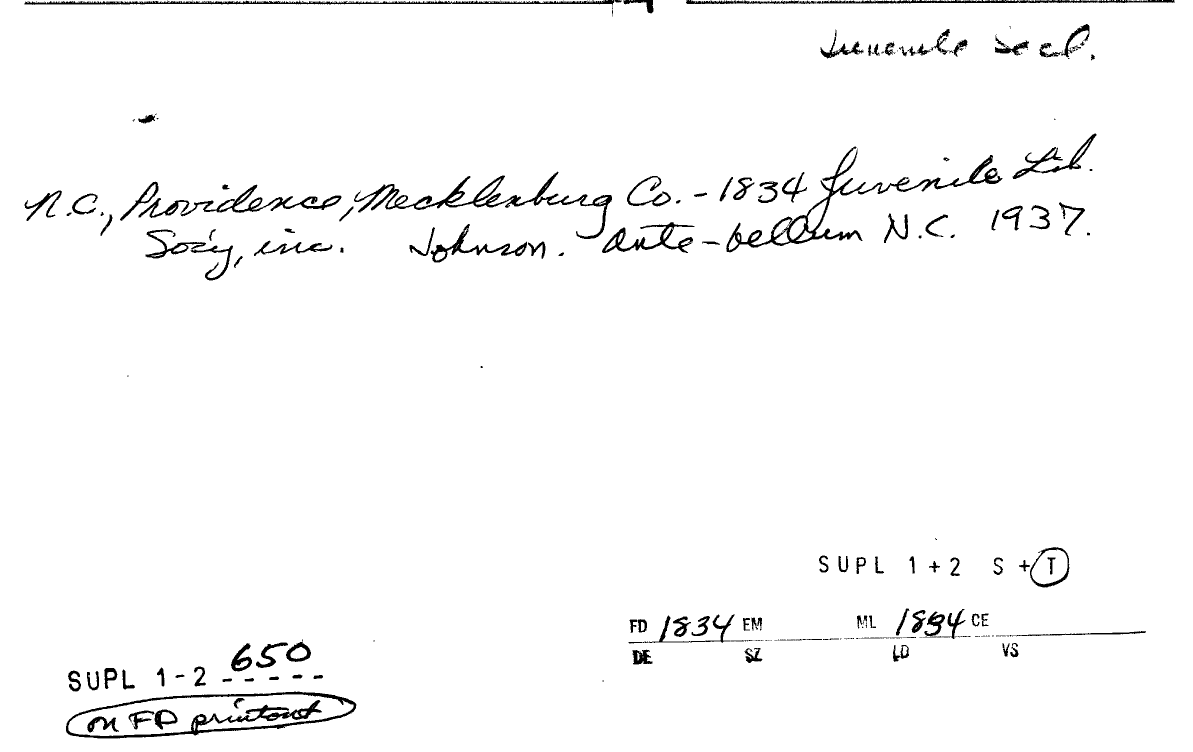 Juvenile Socl.
N.C., Providence, Mecklenburg Co. - 1834 Juvenile Lib.
Soc'y, inc. Johnson. Ante-bellum N.C. 1937.
SUPL 1+2 S + T
FD 1834 EM ML 1834 CE
DE SZ LD VS
SUPL 1-2 650
on FD printout